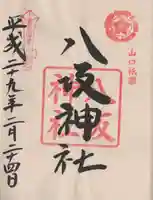 山口祇園
八坂神社
八坂神社
平成二十九年二月二十四日